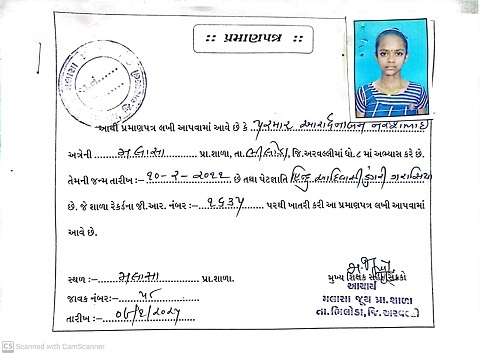 :: પ્રમાણપત્ર ::
આથી પ્રમાણપત્ર લખી આપવામાં આવે છે કે પરમાર આરાધનાબેન
અત્રેની મલાસા પ્રા.શાળા, તા. ભીલોડા, જિ.અરવલ્લીમાં ધો. ૮ માં અભ્યાસ કરે છે.
તેમની જન્મ તારીખ :- ૧૦-૨-૨૦૧૧ છે તથા પેટાજ્ઞાતિ હિન્દુ આદિવાસી ડુંગરી ગરાસિયા
છે. જે શાળા રેકર્ડના જી.આર. નંબર :- ૧૬૩૫ પરથી ખાતરી કરી આ પ્રમાણપત્ર લખી આપવામાં
આવે છે.
સ્થળ :- મલાસા પ્રા.શાળા.
જાવક નંબર:- ૫૮
તારીખ :-
મુખ્ય શિક્ષક સહી સિક્કો
આચાર્ય
મલાસા જૂથ પ્રા.શાળા
તા.ભિલોડા, જિ.અરવલ્લી
CS Scanned with CamScanner